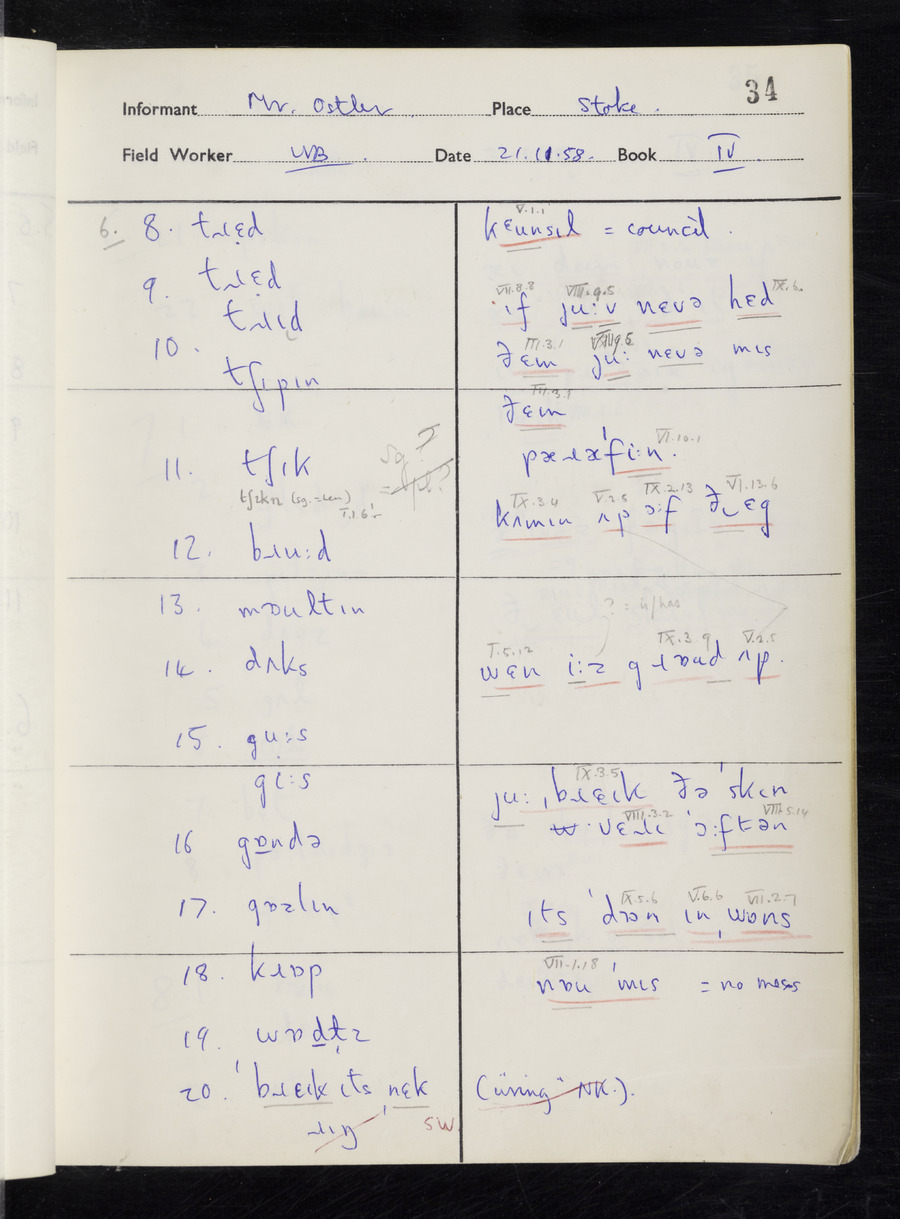 34
Informant Mr. Ostler Place Stoke.
Field Worker WB. Date 21.11.58. Book IV
6. 8. tɹɛd
9. tɹɛd
tɹɪd
10.
tʃɪpɪn
11. tʃɪk
sg?
= pl?
tʃɪkn (sg. = hen)
12. bɹuːd
13. mɒʊltɪn
14. dʌks
15. guːs
giːs
16 gandə
17. gɒzlɪn
18. kɹɒp
19. wɒdtz
20. ˈbɹɛɪk ɪts nɛk
ɹɪŋ SW.
V.1.1
kɛunsɪl = council.
VII.8.8 VIII.9.5 IX.6.
ɪf juːv nevə hɛd
III.3.1 VIII.9.5
ðɛm juː nevə mɪs
III.3.1
ðɛm
VI.10.1
pæɹəˈfiːn.
IX.3.4 V.2.5 IX.2.13 VI.13.6
kʌmɪn ʌp ɔːf ðɪ ɛg
? = is/has
I.5.12 IX.3.9 V.2.5
wɛn iːz gɹɒud ʌp.
IX.3.5
juː ˌbɹɛɪk ðə ˈskɪn
VIII.3.2 VIII.5.14
vɛɹɪ ˈɔːftən
IX.5.6 V.6.6 VII.2.7
ɪts ˈdɹɒn ɪn ˌwɒns
VII.1.18
nɒu ˈmɪs = no messes
("wring" NK.).